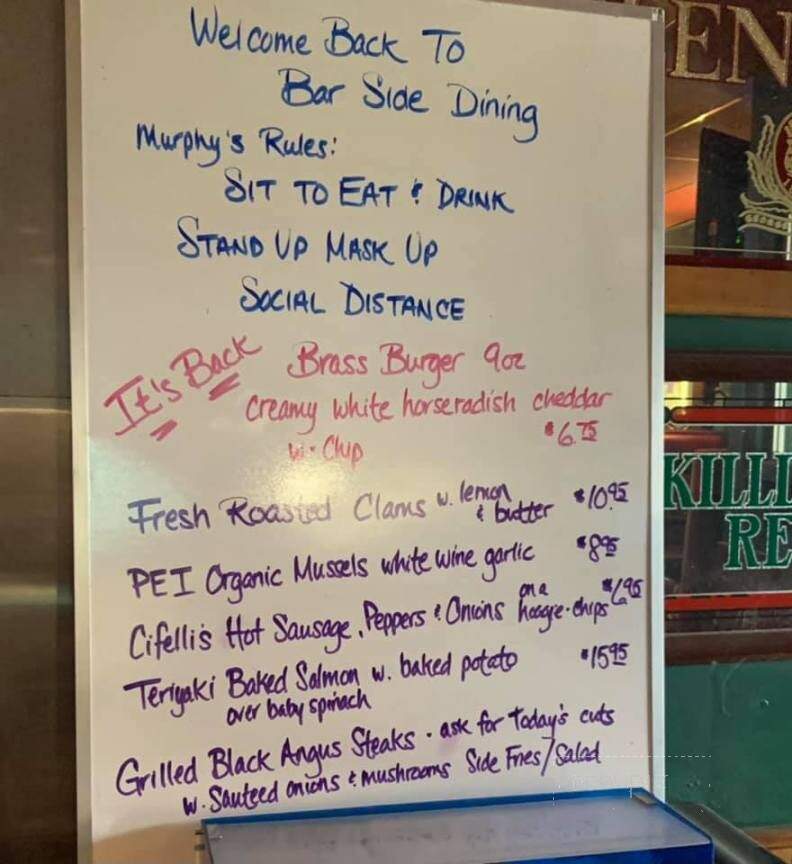 Welcome Back To
Bar Side Dining
Murphy's Rules:
SIT TO EAT & DRINK
STAND UP MASK UP
SOCIAL DISTANCE
It's Back
Brass Burger 9oz
creamy white horseradish cheddar
$6.75
w. Chip
Fresh Roasted Clams w. lemon & butter $10.95
PEI Organic Mussels white wine garlic $8.95
Cifelli's Hot Sausage, Peppers & Onions on a hoagie. chips $6.95
Teriyaki Baked Salmon w. baked potato $15.95
over baby spinach
Grilled Black Angus Steaks. ask for Today's cuts
w. Sauteed onions & mushrooms Side Fries/Salad
EN
KILLI
RE